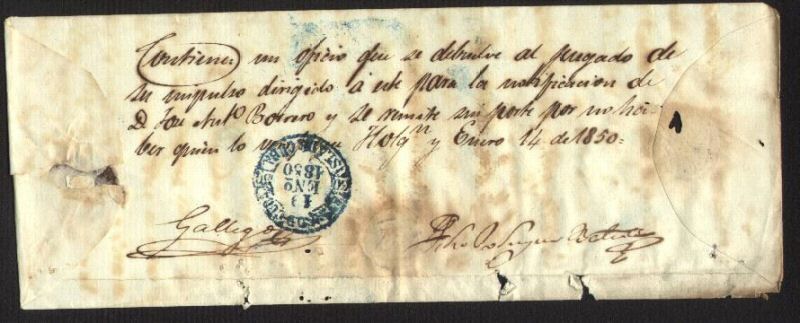 Contiene un oficio que se debuelve al juzgado de
su impulso dirigido á este para la notificacion de
D. José Antº Borrero y se remite sin porte por no há-
ber quien lo Holgⁿ y Enero 14 de 1850=
19
ENº
1850
Gallegos